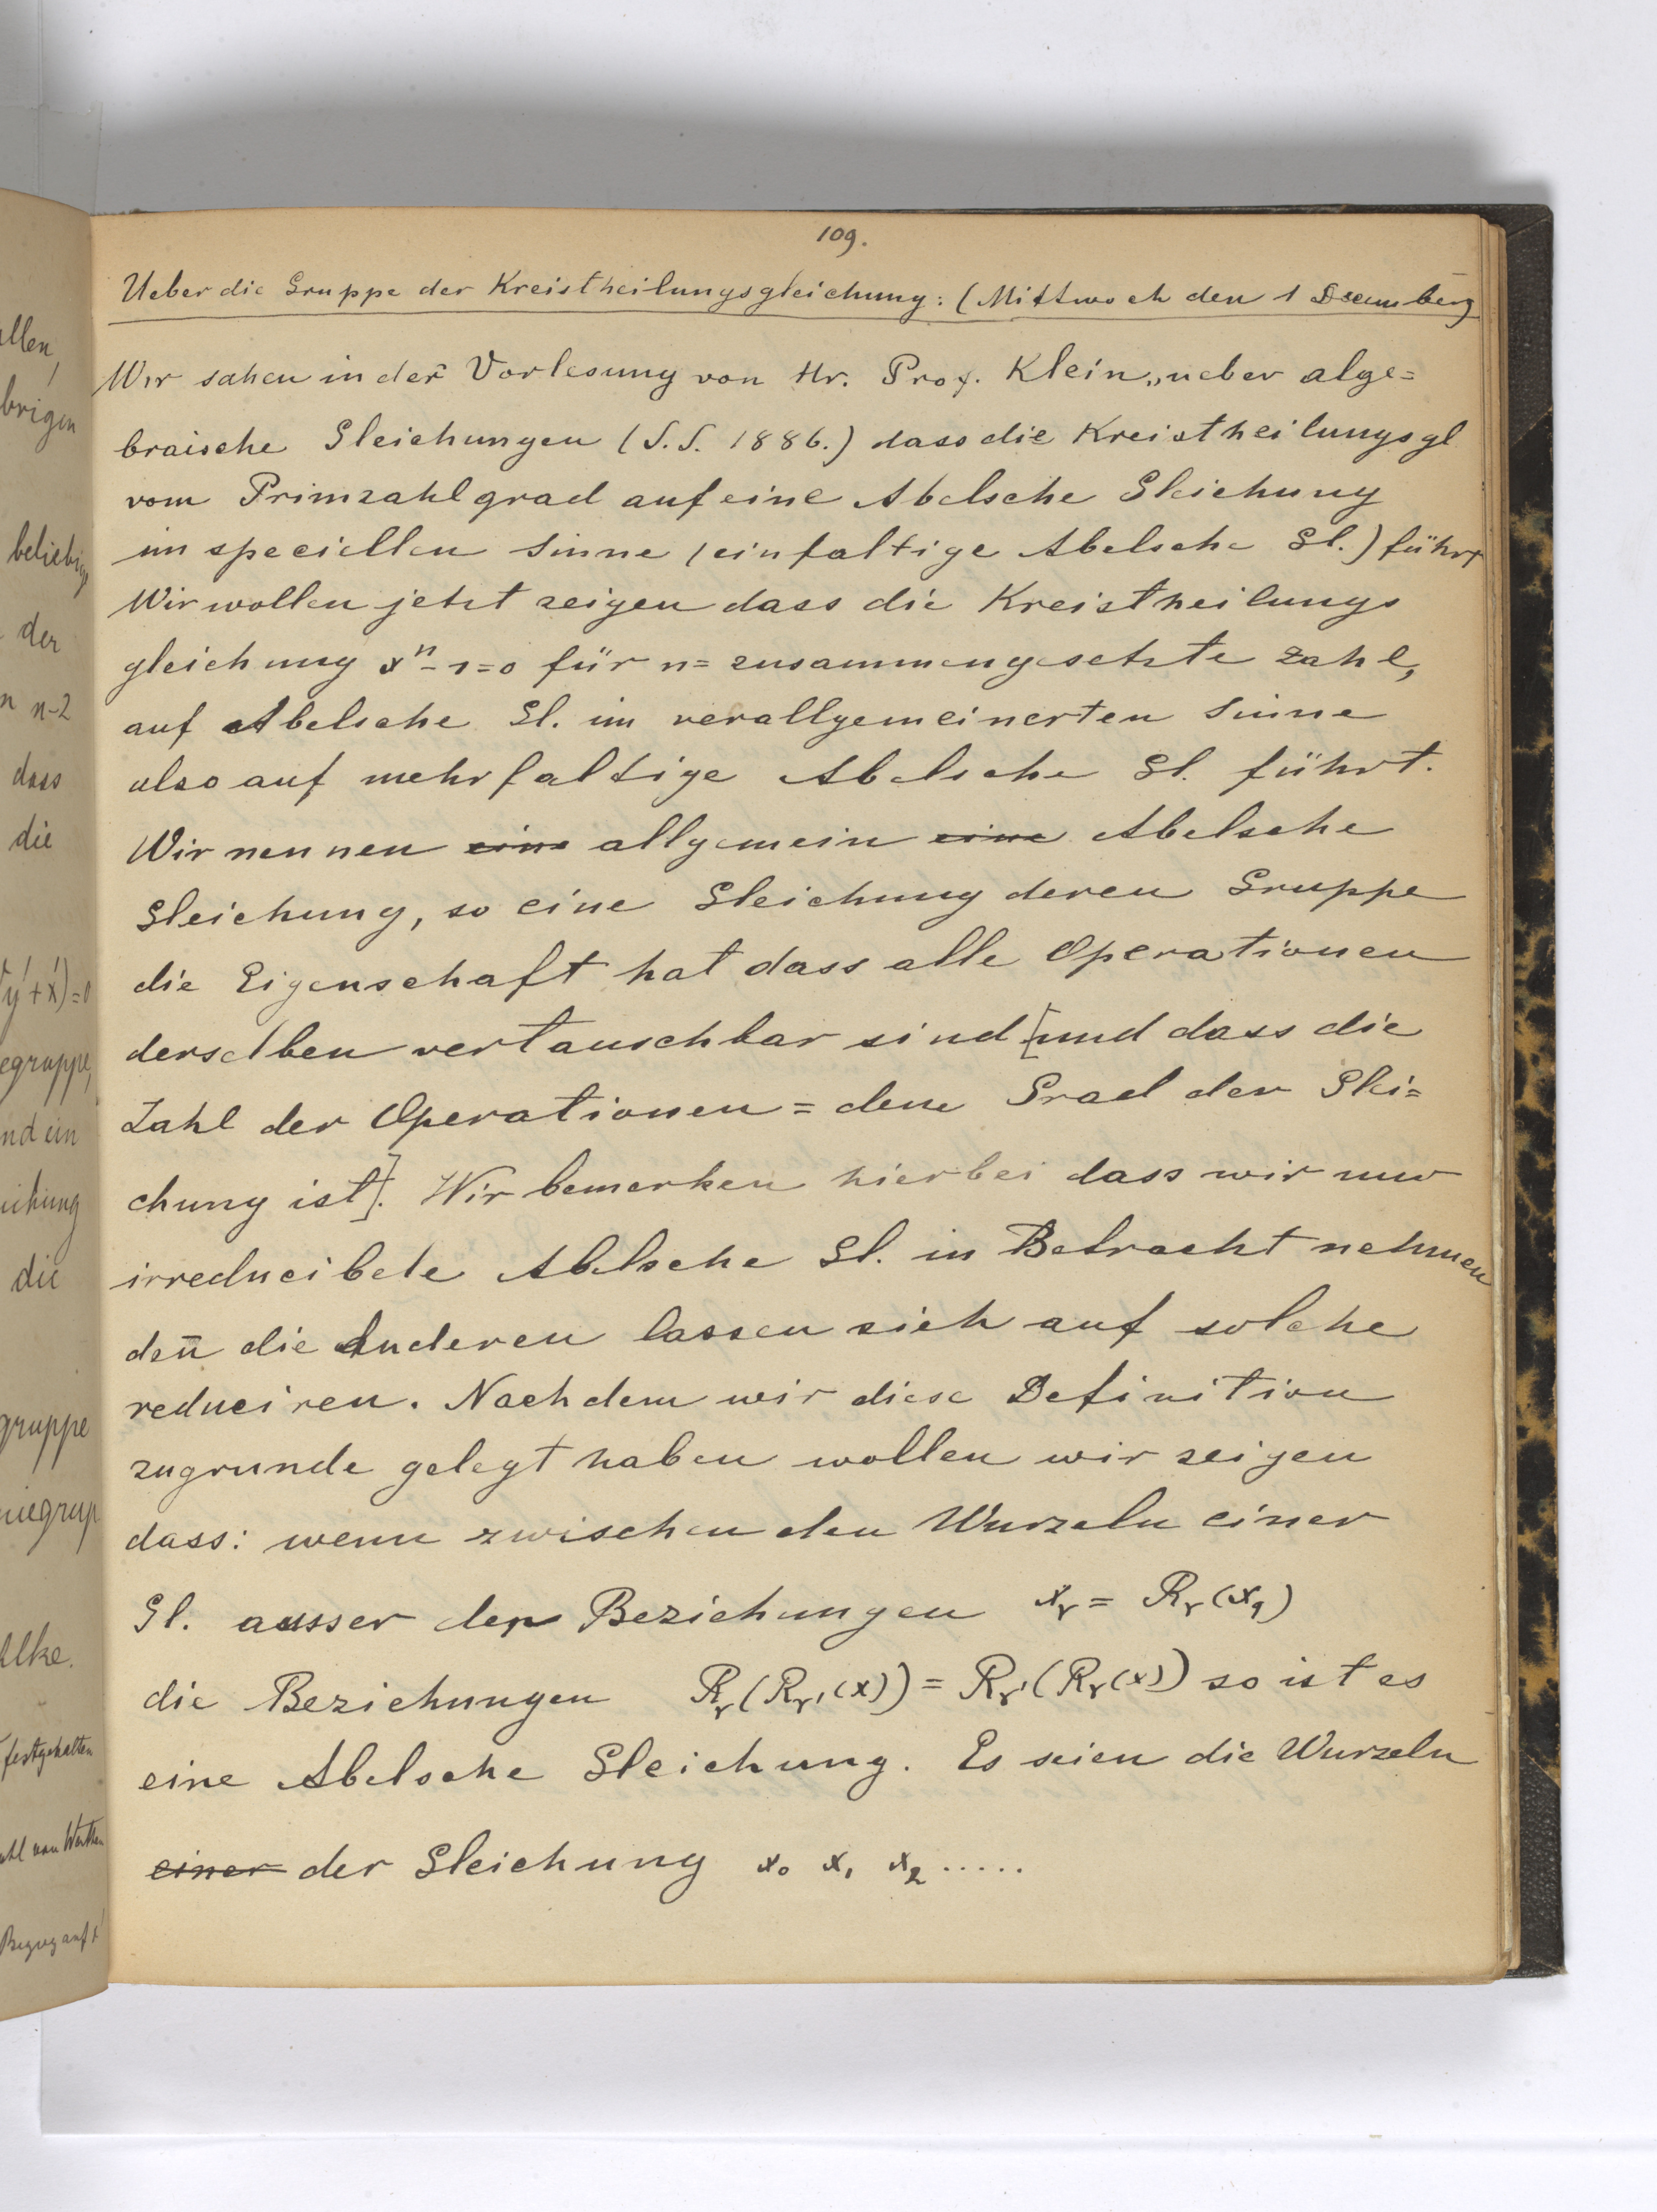 109.
Ueber die Gruppe der Kreistheilungsgleichung: (Mittwoch den 1 Dezember)
Wir sahen in der Vorlesung von Hr. Prof. Klein „ueber alge=
braische Gleichungen (S.S. 1886.) dass die Kreistheilungsgl
vom Primzahlgrad auf eine Abelsche Gleichung
im speciellen Sinne (einfaltige Abelsche Gl.) führt
Wir wollen jetzt zeigen dass die Kreistheilungs
gleichung xⁿ-1=0 für n= zusammengesetzte Zahl,
auf Abelsche Gl. im verallgemeinerten Sinne
also auf mehrfaltige Abelsche Gl. führt.
Wir nennen eine allgemein eine Abelsche
Gleichung, so eine Gleichung deren Gruppe
die Eigenschaft hat dass alle Operationen
derselben vertauschbar sind [und dass die
Zahl der Operationen = dem Grad der Glei=
chung ist]. Wir bemerken hierbei dass wir nur
irreducibele Abelsche Gl. in Betracht nehmen
den̄ die Anderen lassen sich auf solche
reduciren. Nachdem wir diese Definition
zugrunde gelegt haben wollen wir zeigen
dass: wenn zwischen den Wurzeln einer
Gl. ausser den Beziehungen xᵣ = Rᵣ(x₁)
die Beziehungen Rᵣ(Rᵣ'(x)) = Rᵣ'(Rᵣ(x)) so ist es
eine Abelsche Gleichung. Es seien die Wurzeln
einer der Gleichung x₀ x₁ x₂ .....
allen,
brigen
beliebige
der
n n-2
dass
die
y'+x')=0
egruppe,
nd ein
eichung
die
gruppe
niegrup
lke.
festgehalten
ahl von Werthen
Bezug auf x'